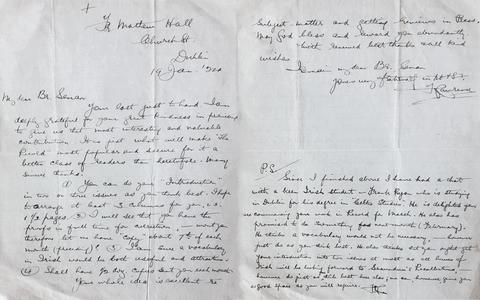 +
Fr Mathew Hall
Church St
Dublin
19 Jan.
My dear Br. Senan
Your last just to hand. I am
deeply grateful for your great kindness in
to give us that most interesting and valuable
contribution. It is just what will make The
Record most popular and secure for it a
better class of readers than heretofore. Many
thanks.
(1) You can do your "Introduction"
in two or three issues as you think best. I hope
to arrange at least 3 columns for you, i.e.
1½ pages. (2) I will see that you have the
proofs in full time for correction,
therefore let me have "copy" about 7th of each
month (preceding). (3) I am sure a vocabulary
in Irish would be both useful and attractive.
(4) I shall have 90 copies sent you each month.
Your whole idea is excellent re
subject-matter and getting reviews in Press.
May God bless and reward you abundantly
with renewed best thanks and kind
wishes
I remain my dear Br. Senan
Yours very
P.S/
Since I finished above I have had a chat
with a keen Irish student – Frank Ryan who is studying
in Dublin for his degree in Celtic Studies. He is delighted you
are commencing your work in Record for March. He also has
promised to do something for next month (February).
He thinks a vocabulary would not be necessary,
just do as you think best. He also thinks that you might get
your introduction into two issues at most as all lovers of
Irish will be looking forward to
just as still best
good space as you will require.